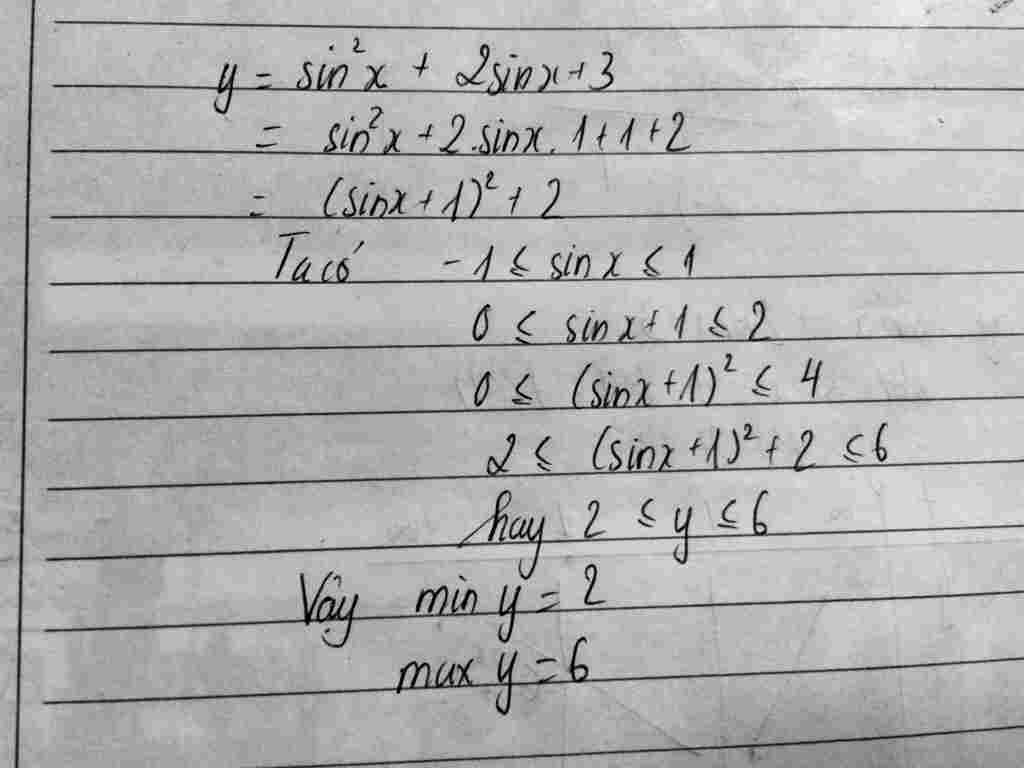 y = sin²x + 2sinx+3
= sin²x + 2.sinx.1+1+2
= (sinx+1)²+2
Ta có -1 ≤ sinx ≤ 1
0 ≤ sinx+1 ≤ 2
0 ≤ (sinx+1)² ≤ 4
2 ≤ (sinx+1)²+2 ≤6
hay 2 ≤ y ≤ 6
Vậy min y = 2
max y = 6